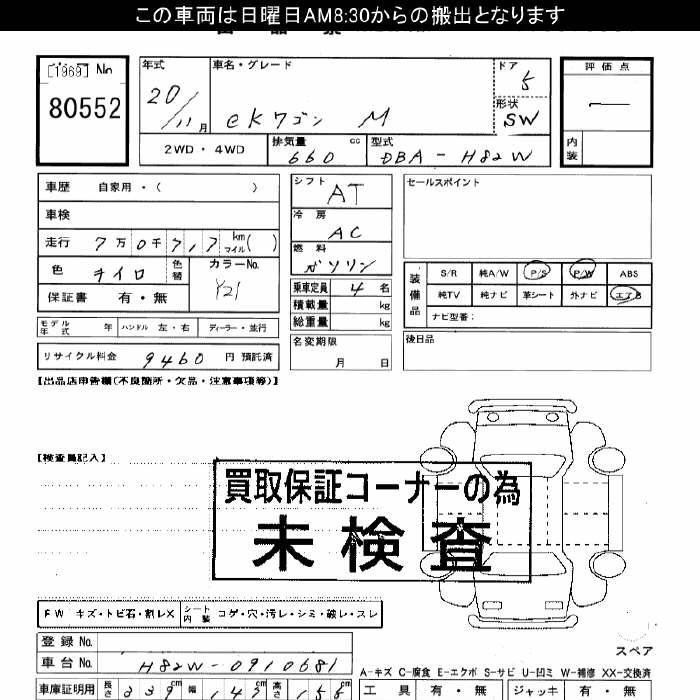 この車両は日曜日AM8:30からの搬出となります
[1969] No
80552
年式 車名・グレード ドア 評価点
20/11月 eKワゴン M 5
形状 SW
2WD・4WD 排気量 660 cc 型式 DBA-H82W 内装
車歴 自家用・( ) シフト AT セールスポイント
車検 冷房 AC
走行 7万0千717 km マイル( ) 燃料 ガソリン
色 キイロ 色替 カラーNo. Y21
装備品 S/R 純A/W P/S P/W ABS
純TV 純ナビ 革シート 外ナビ エアB
ナビ型量:
保証書 有・無 乗車定員 4 名
積載量 kg
総重量 kg
モデル年式 年 ハンドル 左・右 ディーラー・並行
名変期限 月 日 後日品
リサイクル料金 9460 円 預託済
【出品店申告欄(不良箇所・欠品・注意事項等)】
【検査員記入】
買取保証コーナーの為
未検査
FW キズ・トビ石・割レX シート内装 コゲ・穴・汚レ・シミ・破レ・スレ
登録 No.
スペア
車台 No. H82W-0910681
A-キズ C-腐食 E-エクボ S-サビ U-凹ミ W-補修 XX-交換済
車庫証明用 長さ 339cm 幅 147cm 高さ 155 工具 有・無 ジャッキ 有・無